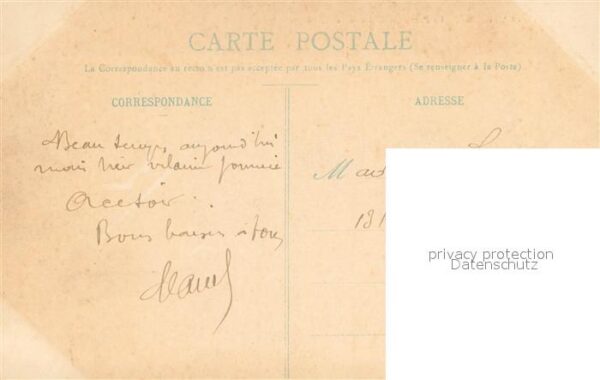 CARTE POSTALE
La Correspondance au recto n'est pas acceptée par tous les Pays Étrangers (Se renseigner à la Poste)
CORRESPONDANCE
ADRESSE
Beau temps aujourd'hui
mais hier vilaine journée
A ce soir.
Bons baisers à tous
M
131
privacy protection
Datenschutz